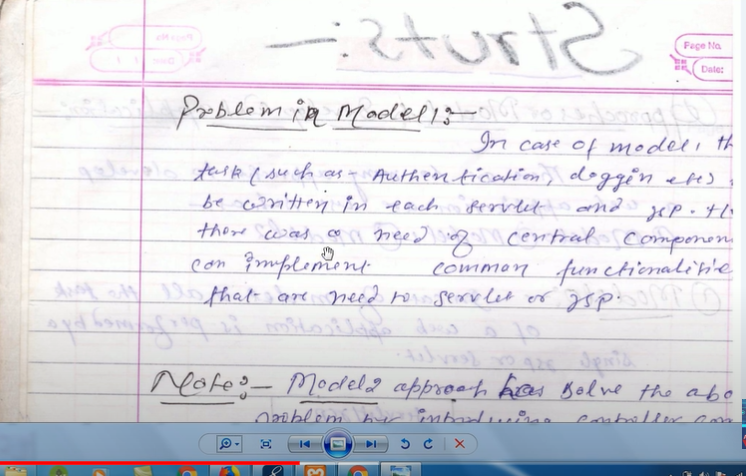 Struts:-
Page No.
Date:
Problem in Model1:-
In case of model1 th
task (such as - Authentication, loggin etc)
be written in each servlet and JSP. th
there was a need of central componen
can implement common functionalitie
that are need to servlet or JSP.
Note:- Model2 approach has solve the abo
problem by introducing controller com